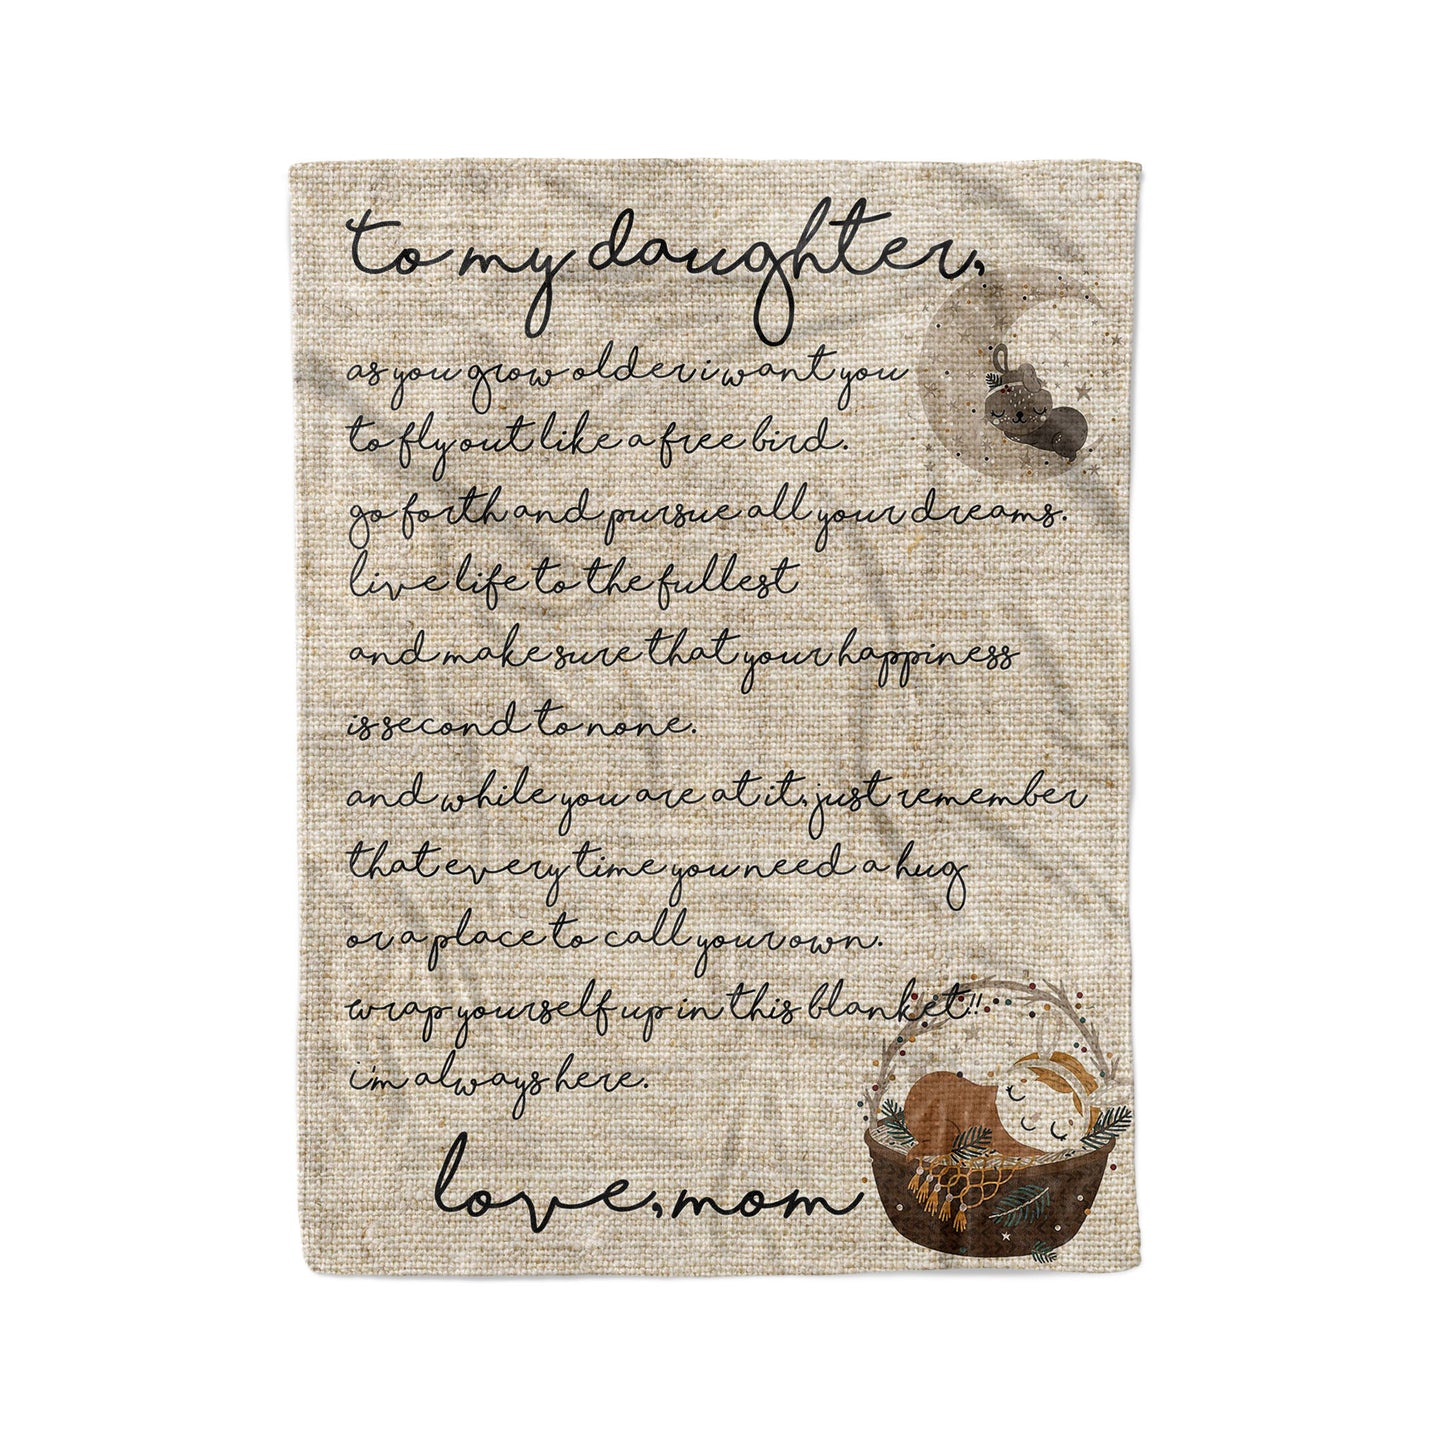 to my daughter,
as you grow older i want you
to fly out like a free bird.
go forth and pursue all your dreams.
live life to the fullest
and make sure that your happiness
is second to none.
and while you are at it, just remember
that every time you need a hug
or a place to call your own.
wrap yourself up in this blanket!!
i'm always here.
love, mom